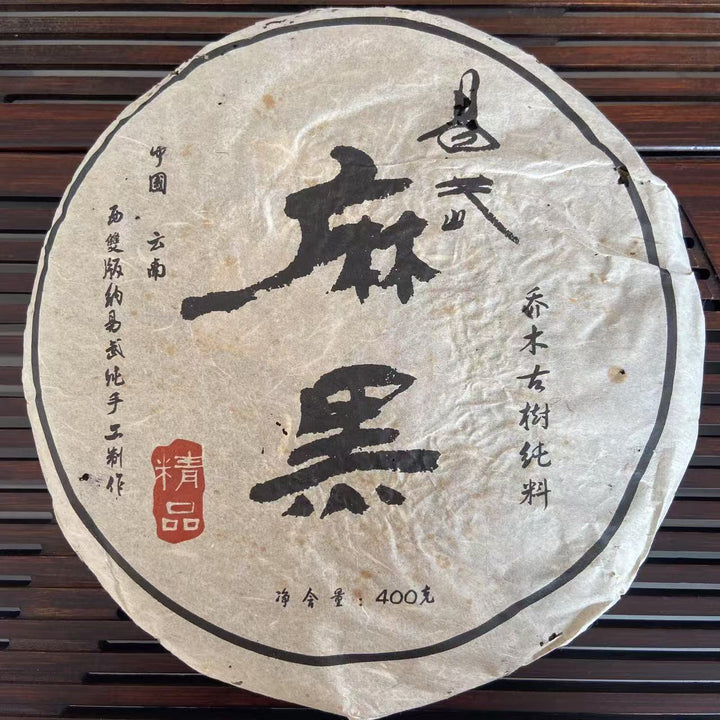 易武
麻黑
乔木古樹纯料
中國·云南
西雙版纳易武纯手工制作
精品
净含量：400克